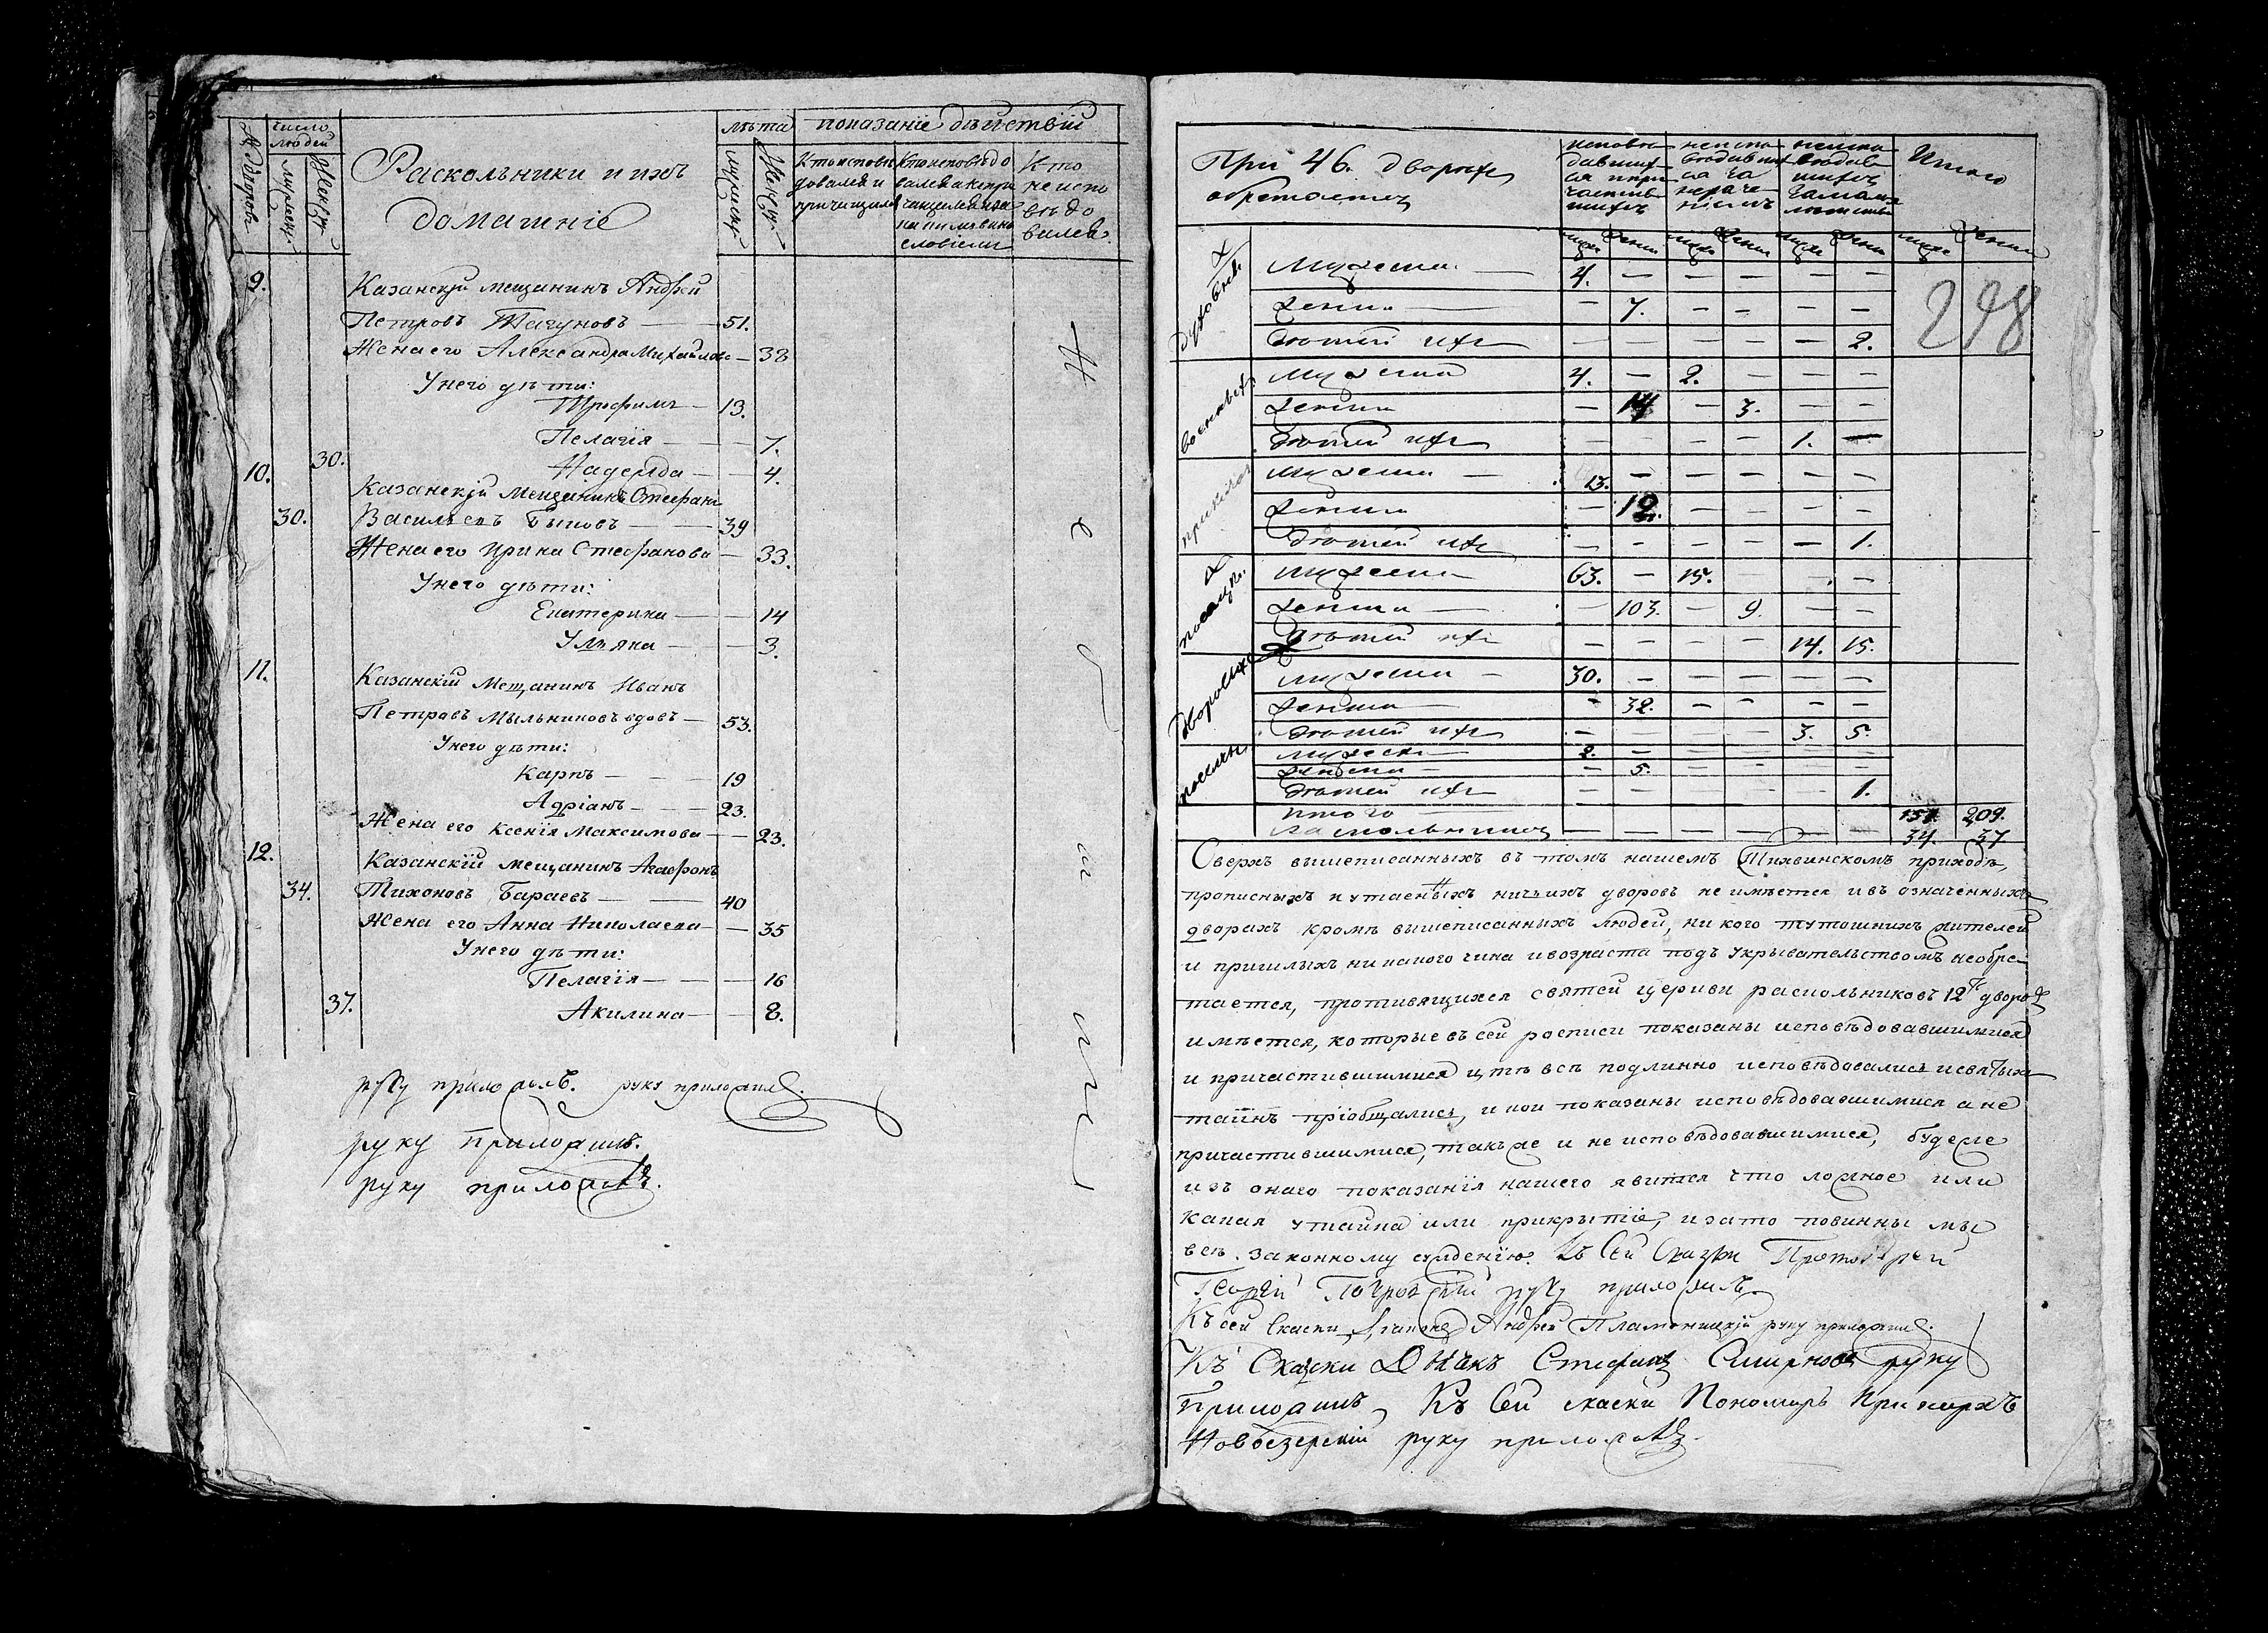 № дворовъ
число людей
мужеску
женску
Раскольники и ихъ
домашніе
лѣта
мужеску
женску
показаніе дѣйствій
Кто исповѣ
довался и
причищался
Кто исповѣдо
вался а не при
чащался и за
какимъ вино
словіемъ
Кто
не испо
вѣдо
вался
9.
Казанскій мещанинъ Андрей
Петровъ Тагуновъ — 51.
Жена его Александра Михайлова — 38
У него дѣти:
Трофимъ — 13.
Пелагія — 7.
30. Надежда — 4.
10.
Казанскій Мещанинъ Стефанъ
30. Васильевъ Быковъ — 39
Жена его Ирина Стефанова — 33.
У него дѣти:
Екатерина — 14
Ульяна — 3.
11.
Казанскій Мещанинъ Иванъ
Петровъ Мыльниковъ вдовъ — 53.
У него дѣти:
Карпъ — 19
Адріанъ — 23.
Жена его Ксенія Максимова — 23.
12.
Казанскій мещанинъ Агафонъ
34. Тихоновъ Бараевъ — 40
Жена его Анна Николаева — 35
У него дѣти:
Пелагія — 16
37. Акилина — 8.
руку приложилъ. руку приложилъ.
руку приложилъ.
руку приложилъ.
При 46. дворахъ
обретается
исповѣ
давших
ся и при
частив
шихся
неиспо
вѣдавших
ся за
нераче
ніемъ
неиспо
вѣдав
шихся
за мало
лѣтств
Итого
муже женск муже женск муже женск муже женск
298
духовных
мужеска — 4. — — — — —
женска — — 7. — — — —
дѣтей ихъ — — — — — 2.
военныхъ
мужеска 4. — 2. — — —
женска — 14 — 3. — —
дѣтей ихъ — — — — 1. —
мужеска — 13. — — — — —
женска — 12. — — — —
дѣтей ихъ — — — — — 1.
посацк.
мужеска 63. — 15. — — —
женска — 103. — 9. — —
дѣтей ихъ — — — — 14. 15.
дворовыхъ
мужеска — 30. — — — — —
женска — 32. — — — —
дѣтей ихъ — — — — 3. 5.
поселян
мужеска 2. — — — — —
женска — 5. — — — —
дѣтей ихъ — — — — — 1.
Итого — 151. 209.
раскольниковъ — — — — — — 34. 37
Сверхъ вышеписанныхъ въ томъ нашемъ Тихвинскомъ приходѣ,
прописныхъ и утаенныхъ ничьихъ дворовъ не имѣется и въ означенныхъ
дворахъ кромѣ вышеписанныхъ людей, ни кого тутошнихъ жителей
и пришлыхъ ни какого чина и возраста подъ укрывательствомъ необре-
тается, противящихся святей церкви раскольниковъ 12ть дворовъ
имѣется, которые въ сей росписи показаны исповѣдовавшимися
и причастившимися и тѣ всѣ подлинно исповѣдовались и святыхъ
таинъ пріобщались, и кои показаны исповѣдовавшимися а не
причастившимися, такъ же и не исповѣдовавшимися, буде же
изъ онаго показанія нашего явится что ложное или
какая утайка или прикрытіе, и зато повинны мы
всѣ законному сужденію. Къ сей сказки Протоіерей
Георгій Покровскій руку приложилъ.
Къ сей сказки Діаконъ Андрей Пламеницкій руку приложилъ.
Къ Сказки Дьякъ Стефанъ Смирновъ руку
Приложилъ, Къ Сей сказки Пономарь
Новоезерскій руку приложилъ.